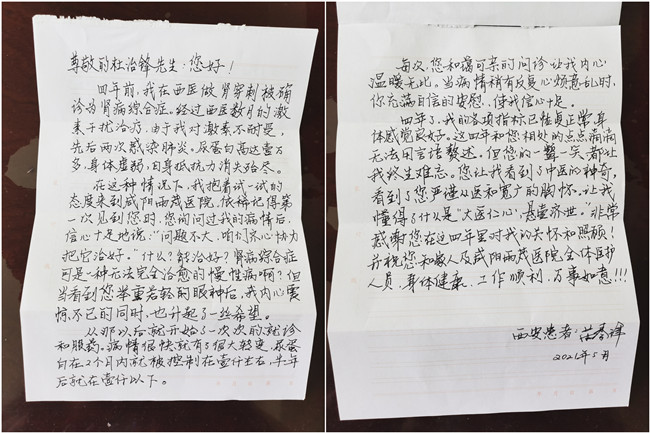 尊敬的杜治锋先生:您好!
四年前,我在西医做肾穿刺被确
诊为肾病综合症。经过西医数月的激
素干扰治疗,由于我对激素不耐受,
先后两次感染肺炎。尿蛋白高达壹万
多,身体虚弱,自身抵抗力消失殆尽。
在这种情况下,我抱着试一试的
态度来到咸阳西茂医院,依稀记得第
一次见到您时,您询问过我的病情后,
信心十足地说:“问题不大,咱们齐心协力
把它治好。”什么?能治好?肾病综合症
可是一种无法完全治愈的慢性病啊?但
当看到您举重若轻的眼神后,我内心震
惊不已的同时,也升起了一丝希望。
从那以后就开始了一次次的就诊
和服药。病情很快就有了很大转变,尿蛋
白在2个月内就被控制在壹仟左右,半年
后就在壹仟以下。
每次,您和蔼可亲的问诊让我内心
温暖无比。当病情稍有反复心烦意乱时,
你充满自信的安慰,使我信心十足。
四年了,我的各项指标已恢复正常,身
体感觉良好。这四年和您相处的点点滴滴
无法用言语赘述。但您的一颦一笑都让
我终生难忘。您让我看到了中医的神奇,
看到了您严谨从医和宽广的胸怀。让我
懂得了什么是“大医仁心,悬壶济世。”非常
感谢您在这四年里对我的关怀和照顾!
并祝您和家人及咸阳西茂医院全体医护
人员,身体健康、工作顺利、万事如意!!!
西安患者:
2021年5月